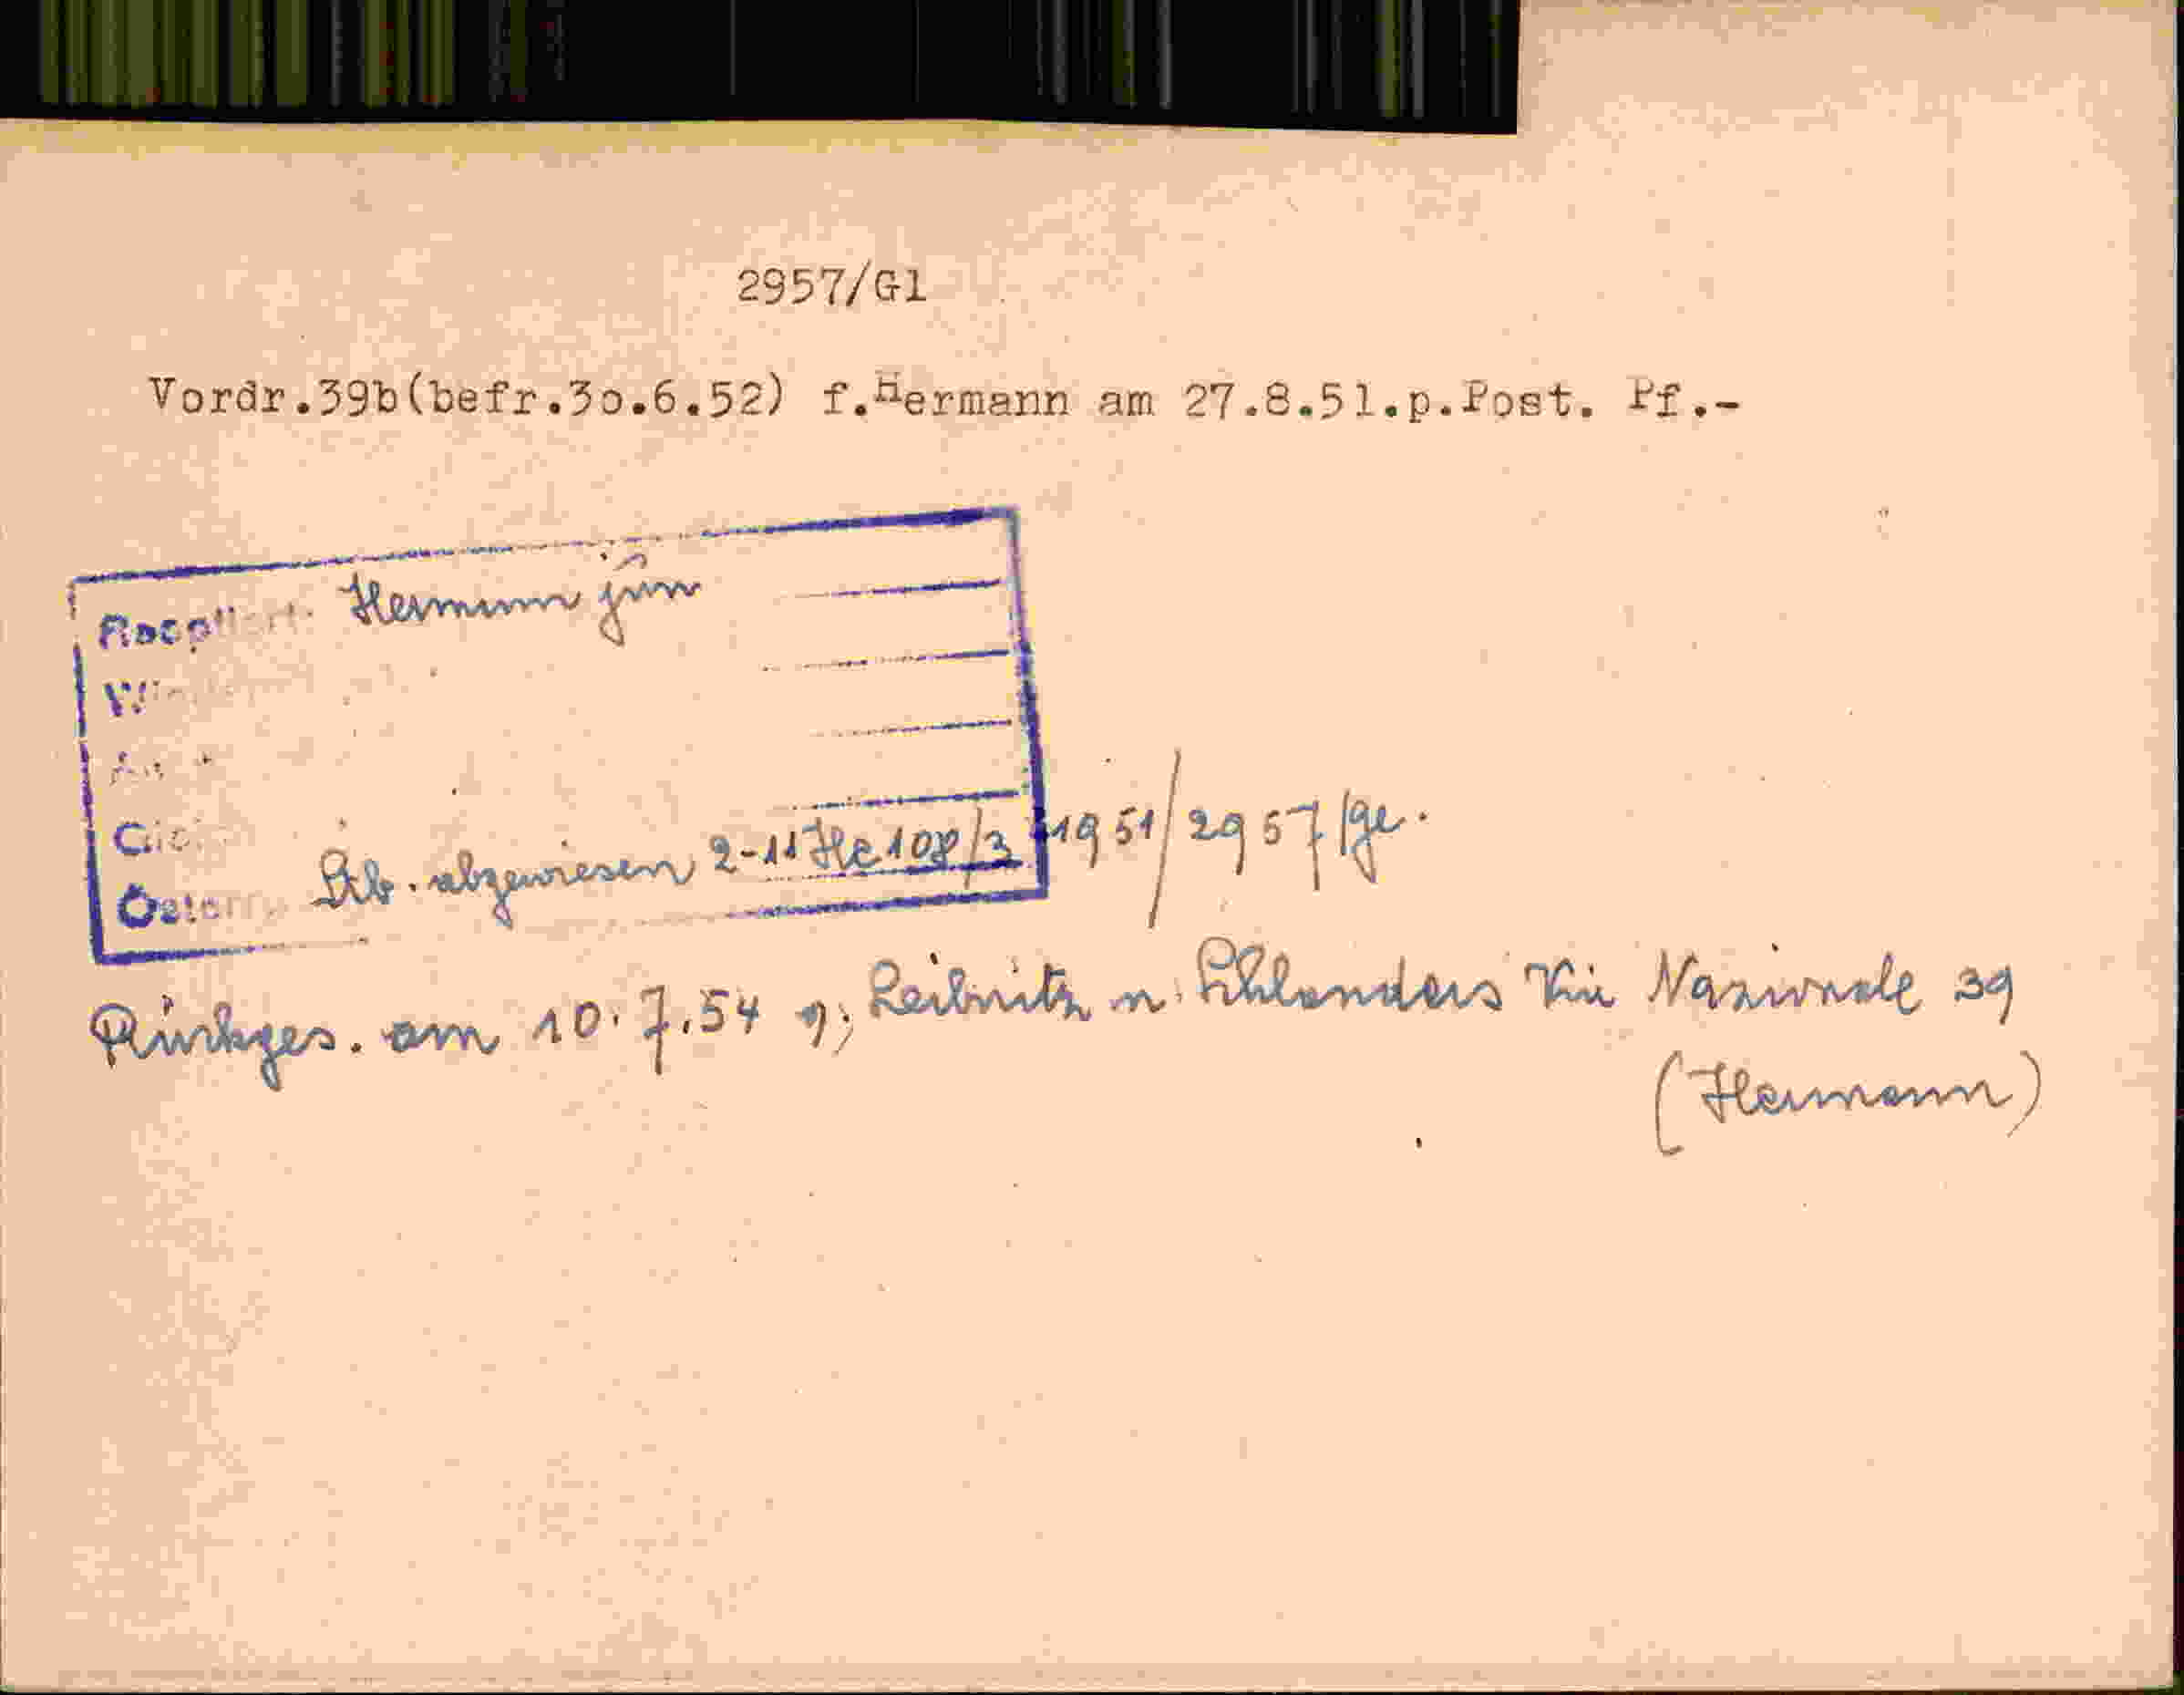 2957/Gl
Vordr.39b(befr.3o.6.52) f.Hermann am 27.8.51.p.Post. Pf.-
Hermann jun
Stb. abgewiesen 2-11 He 108/3 1951/2957/ge.
Österr.
Rückges. am 10.7.54 v. Leibnitz n. Schlanders Via Nazionale 39
(Hermann)